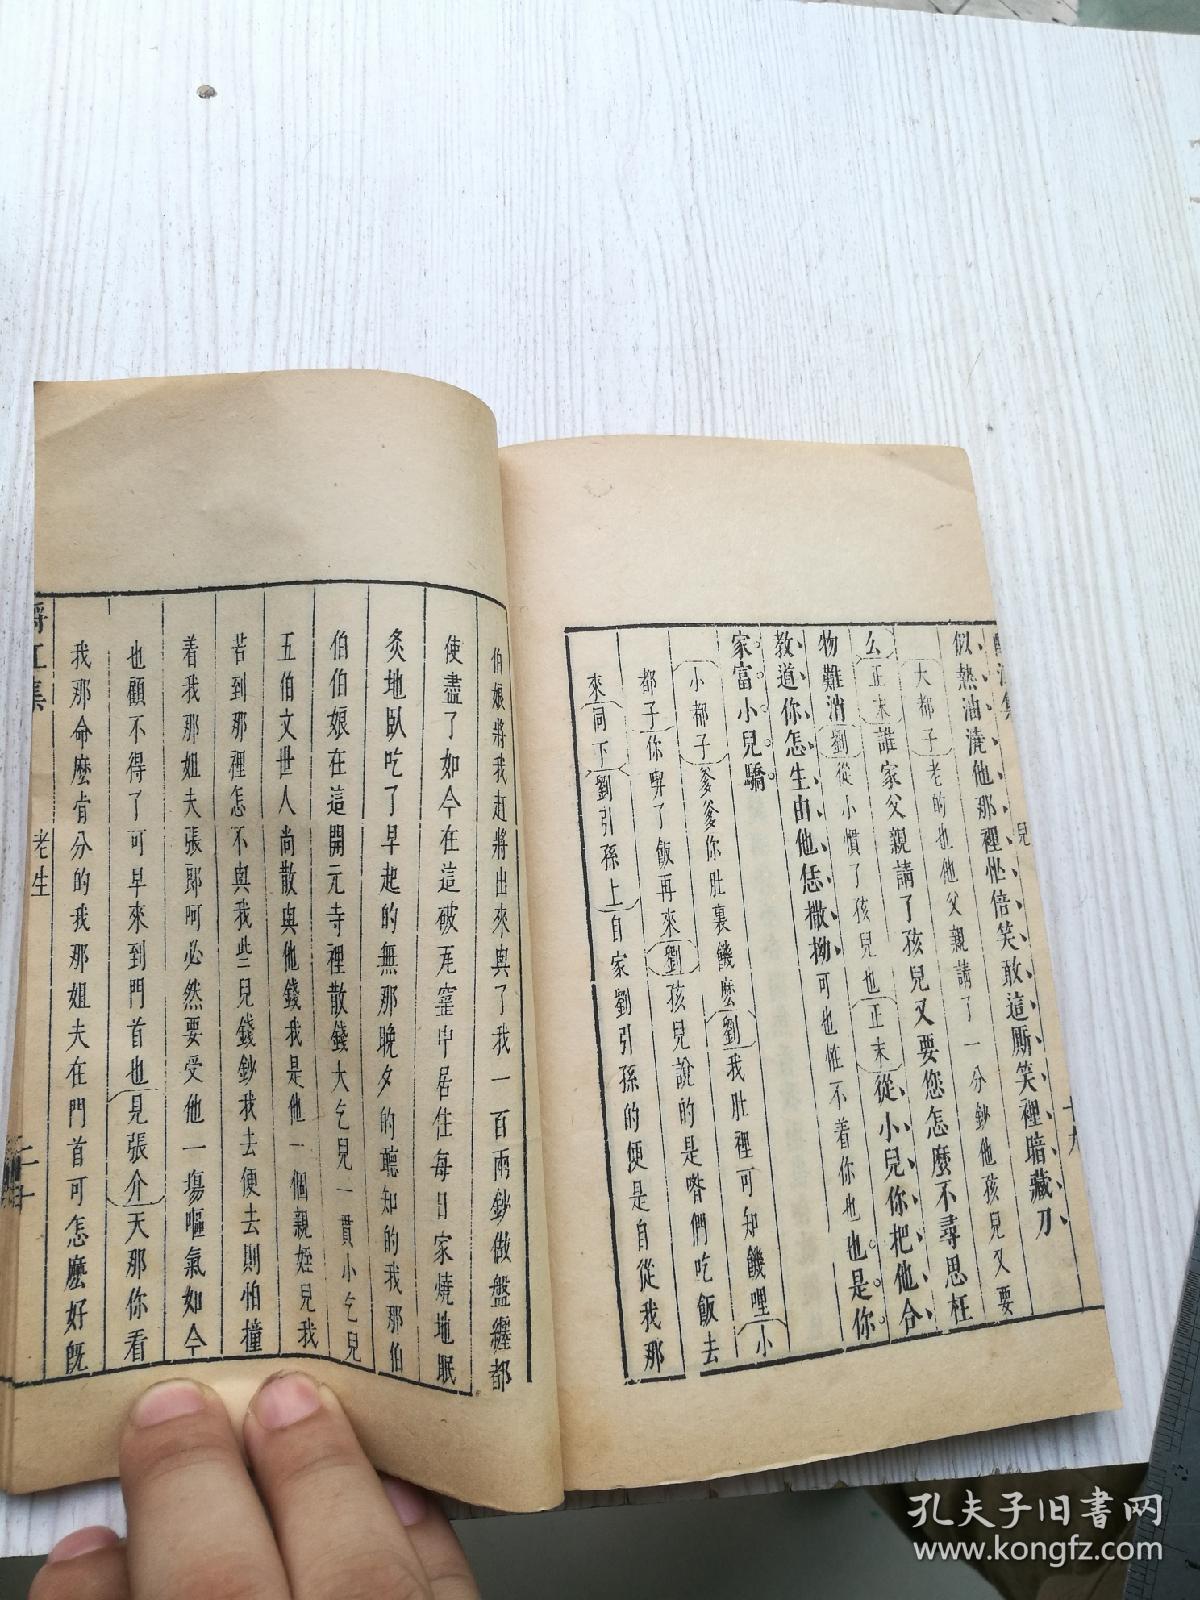 似熱油澆他那裡忙倍笑敢這厮笑裡暗藏刀
大都子老的也他父親請了一分鈔他孩兒又要
么正末誰家父親請了孩兒又要您怎麼不尋思枉
物難消劉從小慣了孩兒也正末從小兒你把他合
教道你怎生由他恁撒拗可也惟不着你也也是你
家富小兒驕
小都子爹爹你肚裏饑麽劉我肚裡可知饑哩小
都子你學了飯再來劉孩兒說的是喒們吃飯去
來同下劉引孫上自家劉引孫的便是自從我那
伯娘將我赶將出來與了我一百兩鈔做盤纏都
使盡了如今在這破瓦窰中居住每日家燒地眠
炙地臥吃了早起的無那晚夕的聽知的我那伯
伯伯娘在這開元寺裡散錢大乞兒一貫小乞兒
五伯文世人尚散與他錢我是他一個親姪兒我
若到那裡怎不與我些兒錢鈔我去便去則怕撞
着我那姐夫張郎呵必然要受他一塲嘔氣如今
也顧不得了可早來到門首也見張介天那你看
我那命麽肯分的我那姐夫在門首可怎麽好旣
江集 老生
孔夫子旧书网
www.kongfz.com